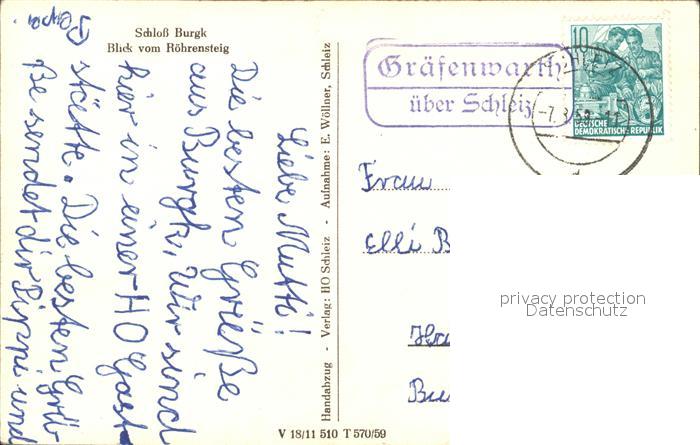 Schloß Burgk
Blick vom Röhrensteig
Liebe Mutti!
Die besten Grüße
aus Burgk, Wir sind
hier in einer HO Gast
stätte. Die besten Grü
ße sendet dir und
Handabzug - Verlag: HO Schleiz - Aufnahme: E. Wöllner, Schleiz
Gräfenwarth
über Schleiz
10
DEUTSCHE
DEMOKRATISCHE REPUBLIK
Frau
Elli B
privacy protection
Datenschutz
V 18/11 510 T 570/59